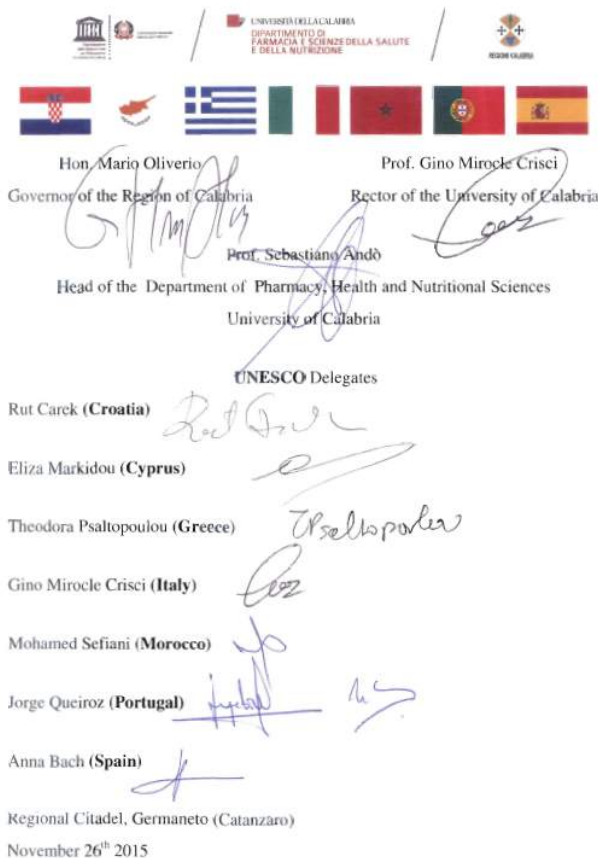 UNIVERSITÀ DELLA CALABRIA
DIPARTIMENTO DI
FARMACIA E SCIENZE DELLA SALUTE
E DELLA NUTRIZIONE
REGIONE CALABRIA
Hon. Mario Oliverio
Governor of the Region of Calabria
Prof. Gino Mirocle Crisci
Rector of the University of Calabria
Prof. Sebastiano Andò
Head of the Department of Pharmacy, Health and Nutritional Sciences
University of Calabria
UNESCO Delegates
Rut Carek (Croatia)
Eliza Markidou (Cyprus)
Theodora Psaltopoulou (Greece)
Gino Mirocle Crisci (Italy)
Mohamed Sefiani (Morocco)
Jorge Queiroz (Portugal)
Anna Bach (Spain)
Regional Citadel, Germaneto (Catanzaro)
November 26th 2015